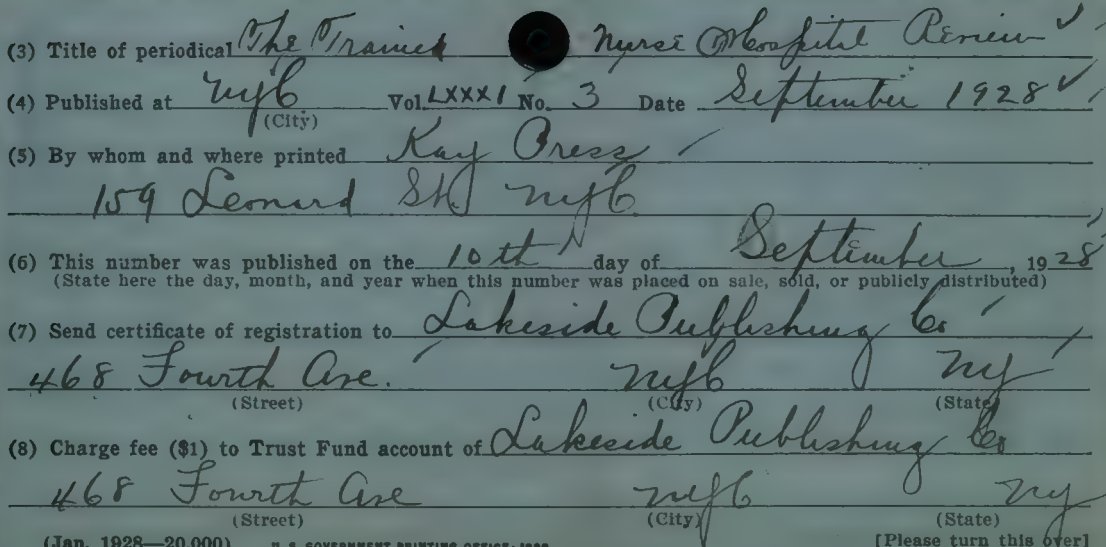 (3) Title of periodical The Trained Nurse & Hospital Review ✓
(4) Published at NYC Vol. LXXXI No. 3 Date September 1928 ✓
(City)
(5) By whom and where printed Kay Press
159 Leonard St NYC
(6) This number was published on the 10th day of September, 1928
(State here the day, month, and year when this number was placed on sale, sold, or publicly distributed)
(7) Send certificate of registration to Lakeside Publishing Co
468 Fourth Ave. NYC NY
(Street) (City) (State)
(8) Charge fee ($1) to Trust Fund account of Lakeside Publishing Co
468 Fourth Ave NYC NY
(Street) (City) (State)
(Jan. 1928—20,000) U. S. GOVERNMENT PRINTING OFFICE: 1928 [Please turn this over]